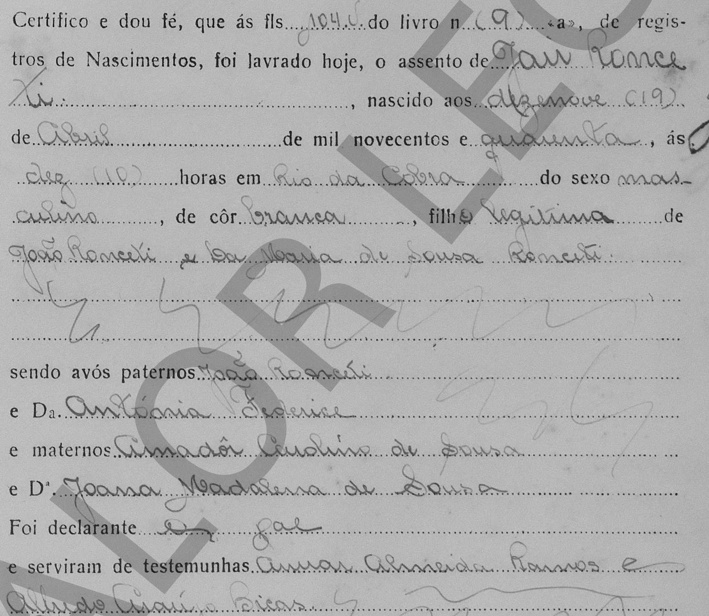 Certifico e dou fé, que ás fls. 104. do livro n (9) «a», de regis-
tros de Nascimentos, foi lavrado hoje, o assento de Jair Ronce
ti. , nascido aos dezenove (19)
de Abril de mil novecentos e quarenta, ás
dez (10) horas em Rio da Cobra do sexo mas-
culino, de côr branca, filho legitimo de
João Ronceti e Da Maria de Sousa Ronceti.
sendo avós paternos João Ronceti
e Da. Antónia Federice
e maternos Amadôr de Sousa
e Dª. Joana Madalena de Sousa
Foi declarante pae
e serviram de testemunhas Almeida Ramos e
VALOR LEG